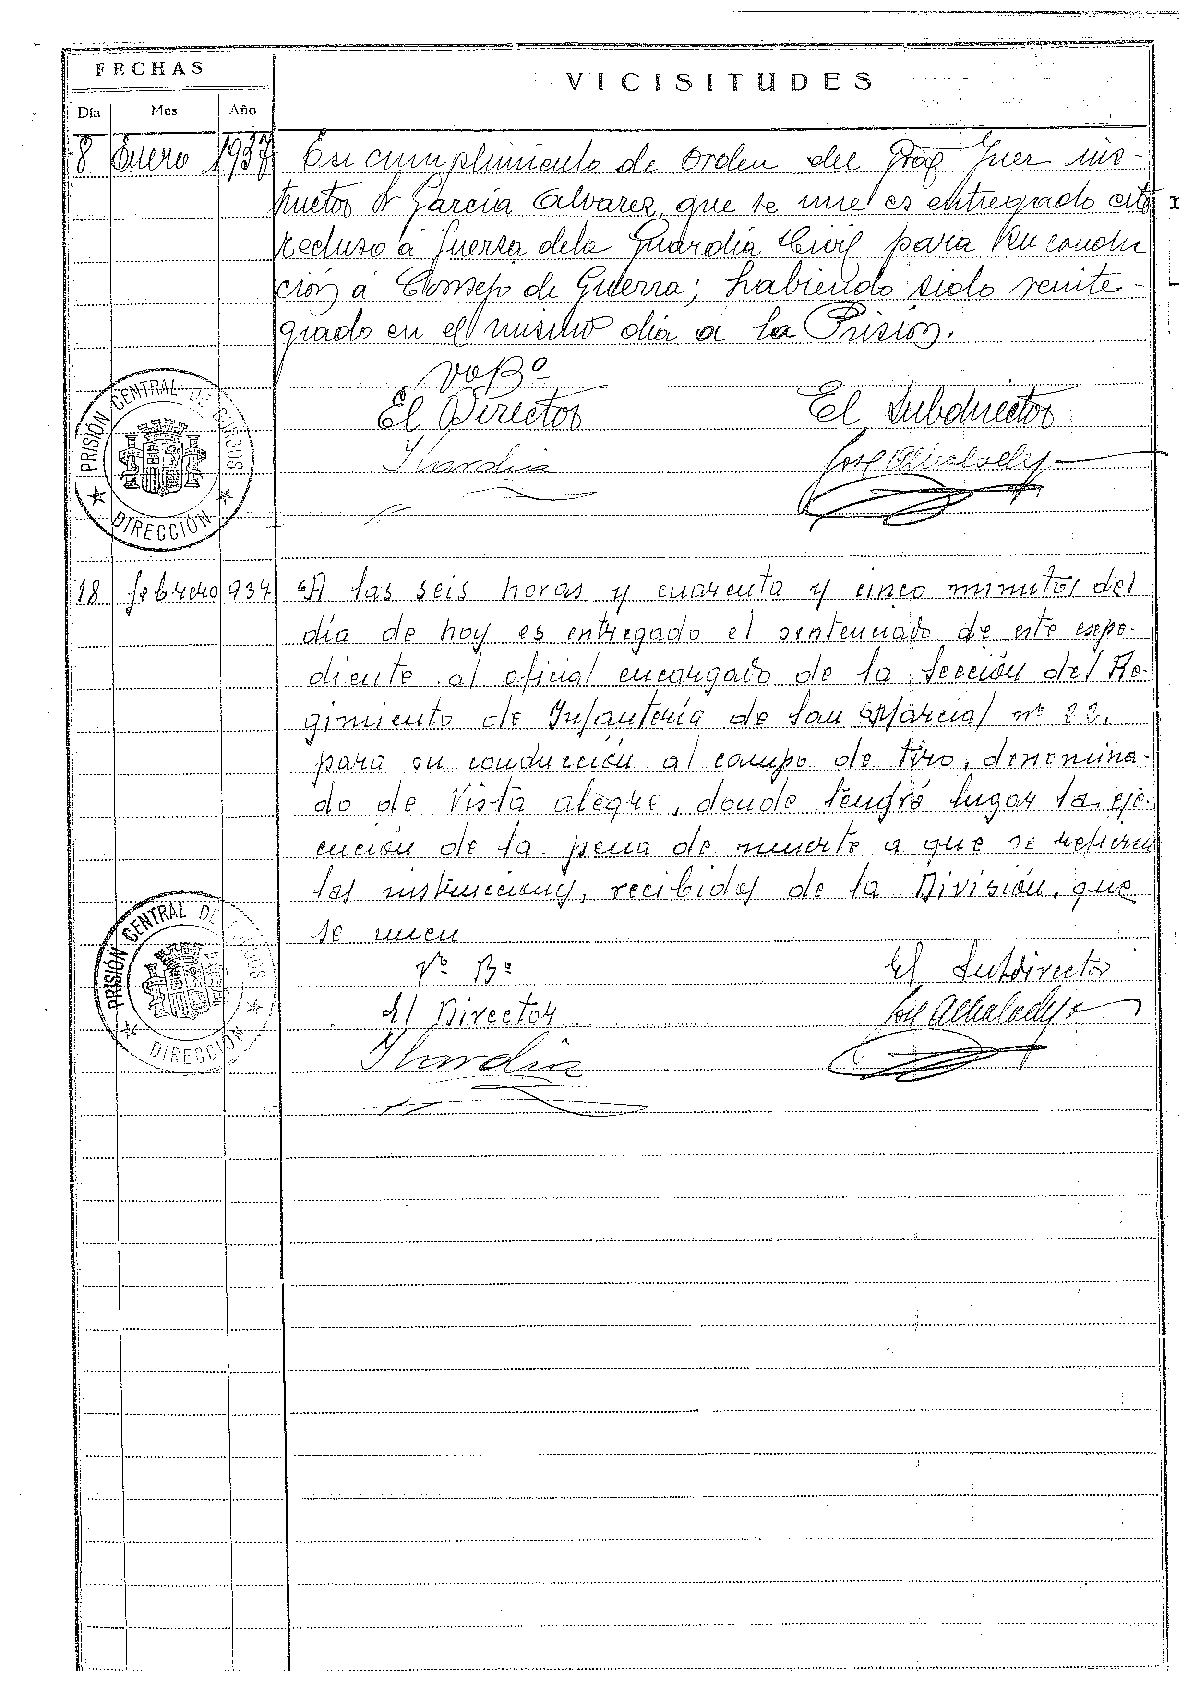 FECHAS
VICISITUDES
Día Mes Año
8 Enero 1937 En cumplimiento de orden del Juez ins-
tructor Sr García Alvarez, que se une es entregado este
recluso á fuerza dela Guardia Civil para su conduc
ción á Consejo de Guerra; habiendo sido reinte-
grado en el mismo día a la Prisión.
VoBº
El Director El Subdirector
PRISIÓN CENTRAL DE BURGOS
DIRECCIÓN
18 febrero 937 A las seis horas y cuarenta y cinco minutos del
día de hoy es entregado el sentenciado de este expe-
diente al oficial encargado de la Sección del Re-
gimiento de Infantería de San Marcial nº 22.
para su conducción al campo de tiro, denomina-
do de Vista alegre, donde tendrá lugar la eje-
cución de la pena de muerte a que se refieren
las instrucciones, recibidas de la División, que
se unen
Vº Bº El Subdirector
El Director
PRISIÓN CENTRAL DE BURGOS
DIRECCIÓN